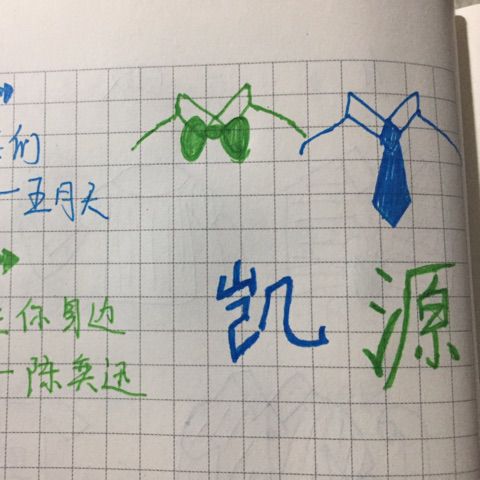 们
—五月天
你身边
—陈奕迅
凯 源